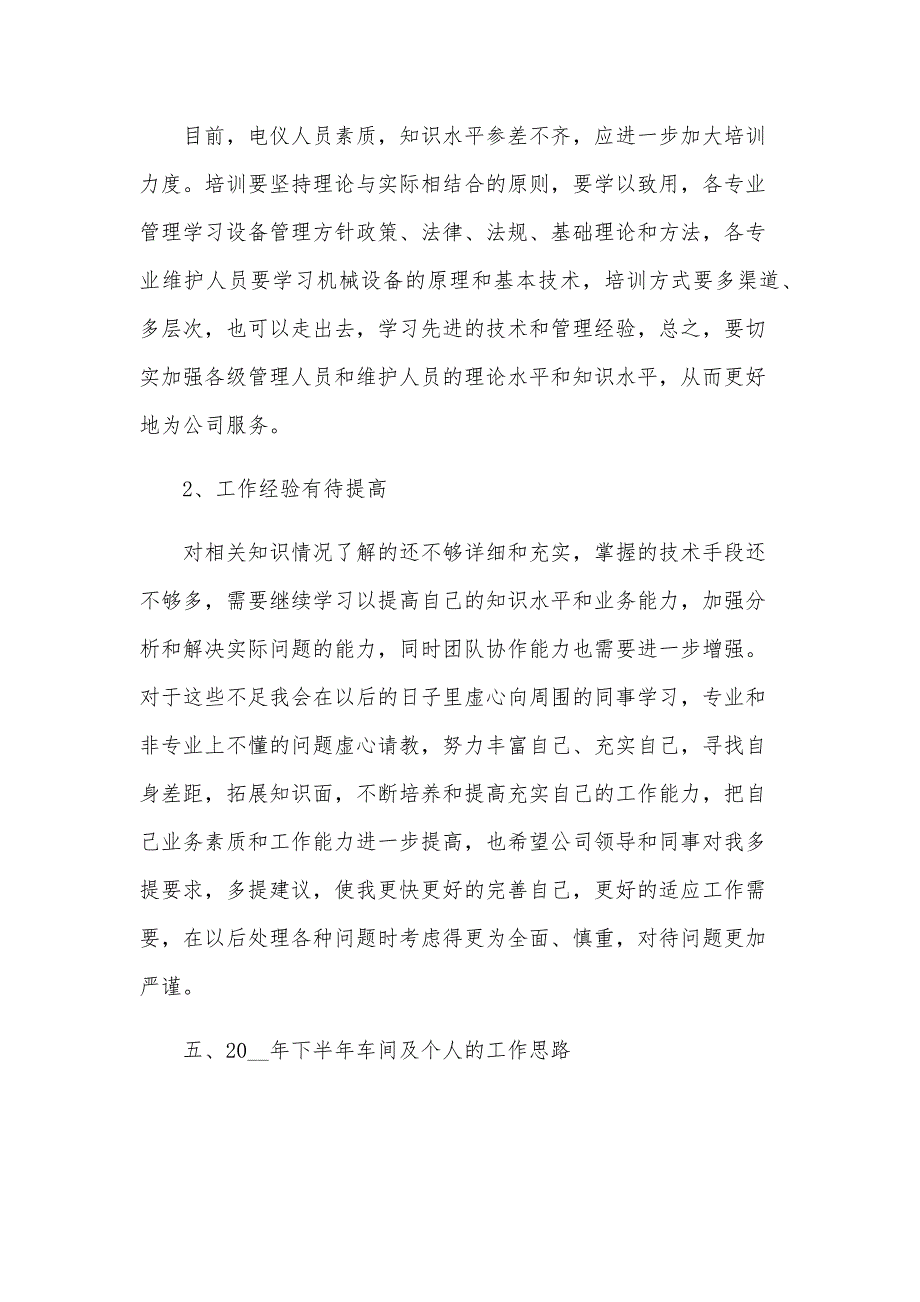 目前，电仪人员素质，知识水平参差不齐，应进一步加大培训
力度。培训要坚持理论与实际相结合的原则，要学以致用，各专业
管理学习设备管理方针政策、法律、法规、基础理论和方法，各专
业维护人员要学习机械设备的原理和基本技术，培训方式要多渠道、
多层次，也可以走出去，学习先进的技术和管理经验，总之，要切
实加强各级管理人员和维护人员的理论水平和知识水平，从而更好
地为公司服务。
2、工作经验有待提高
对相关知识情况了解的还不够详细和充实，掌握的技术手段还
不够多，需要继续学习以提高自己的知识水平和业务能力，加强分
析和解决实际问题的能力，同时团队协作能力也需要进一步增强。
对于这些不足我会在以后的日子里虚心向周围的同事学习，专业和
非专业上不懂的问题虚心请教，努力丰富自己、充实自己，寻找自
身差距，拓展知识面，不断培养和提高充实自己的工作能力，把自
己业务素质和工作能力进一步提高，也希望公司领导和同事对我多
提要求，多提建议，使我更快更好的完善自己，更好的适应工作需
要，在以后处理各种问题时考虑得更为全面、慎重，对待问题更加
严谨。
五、20__年下半年车间及个人的工作思路